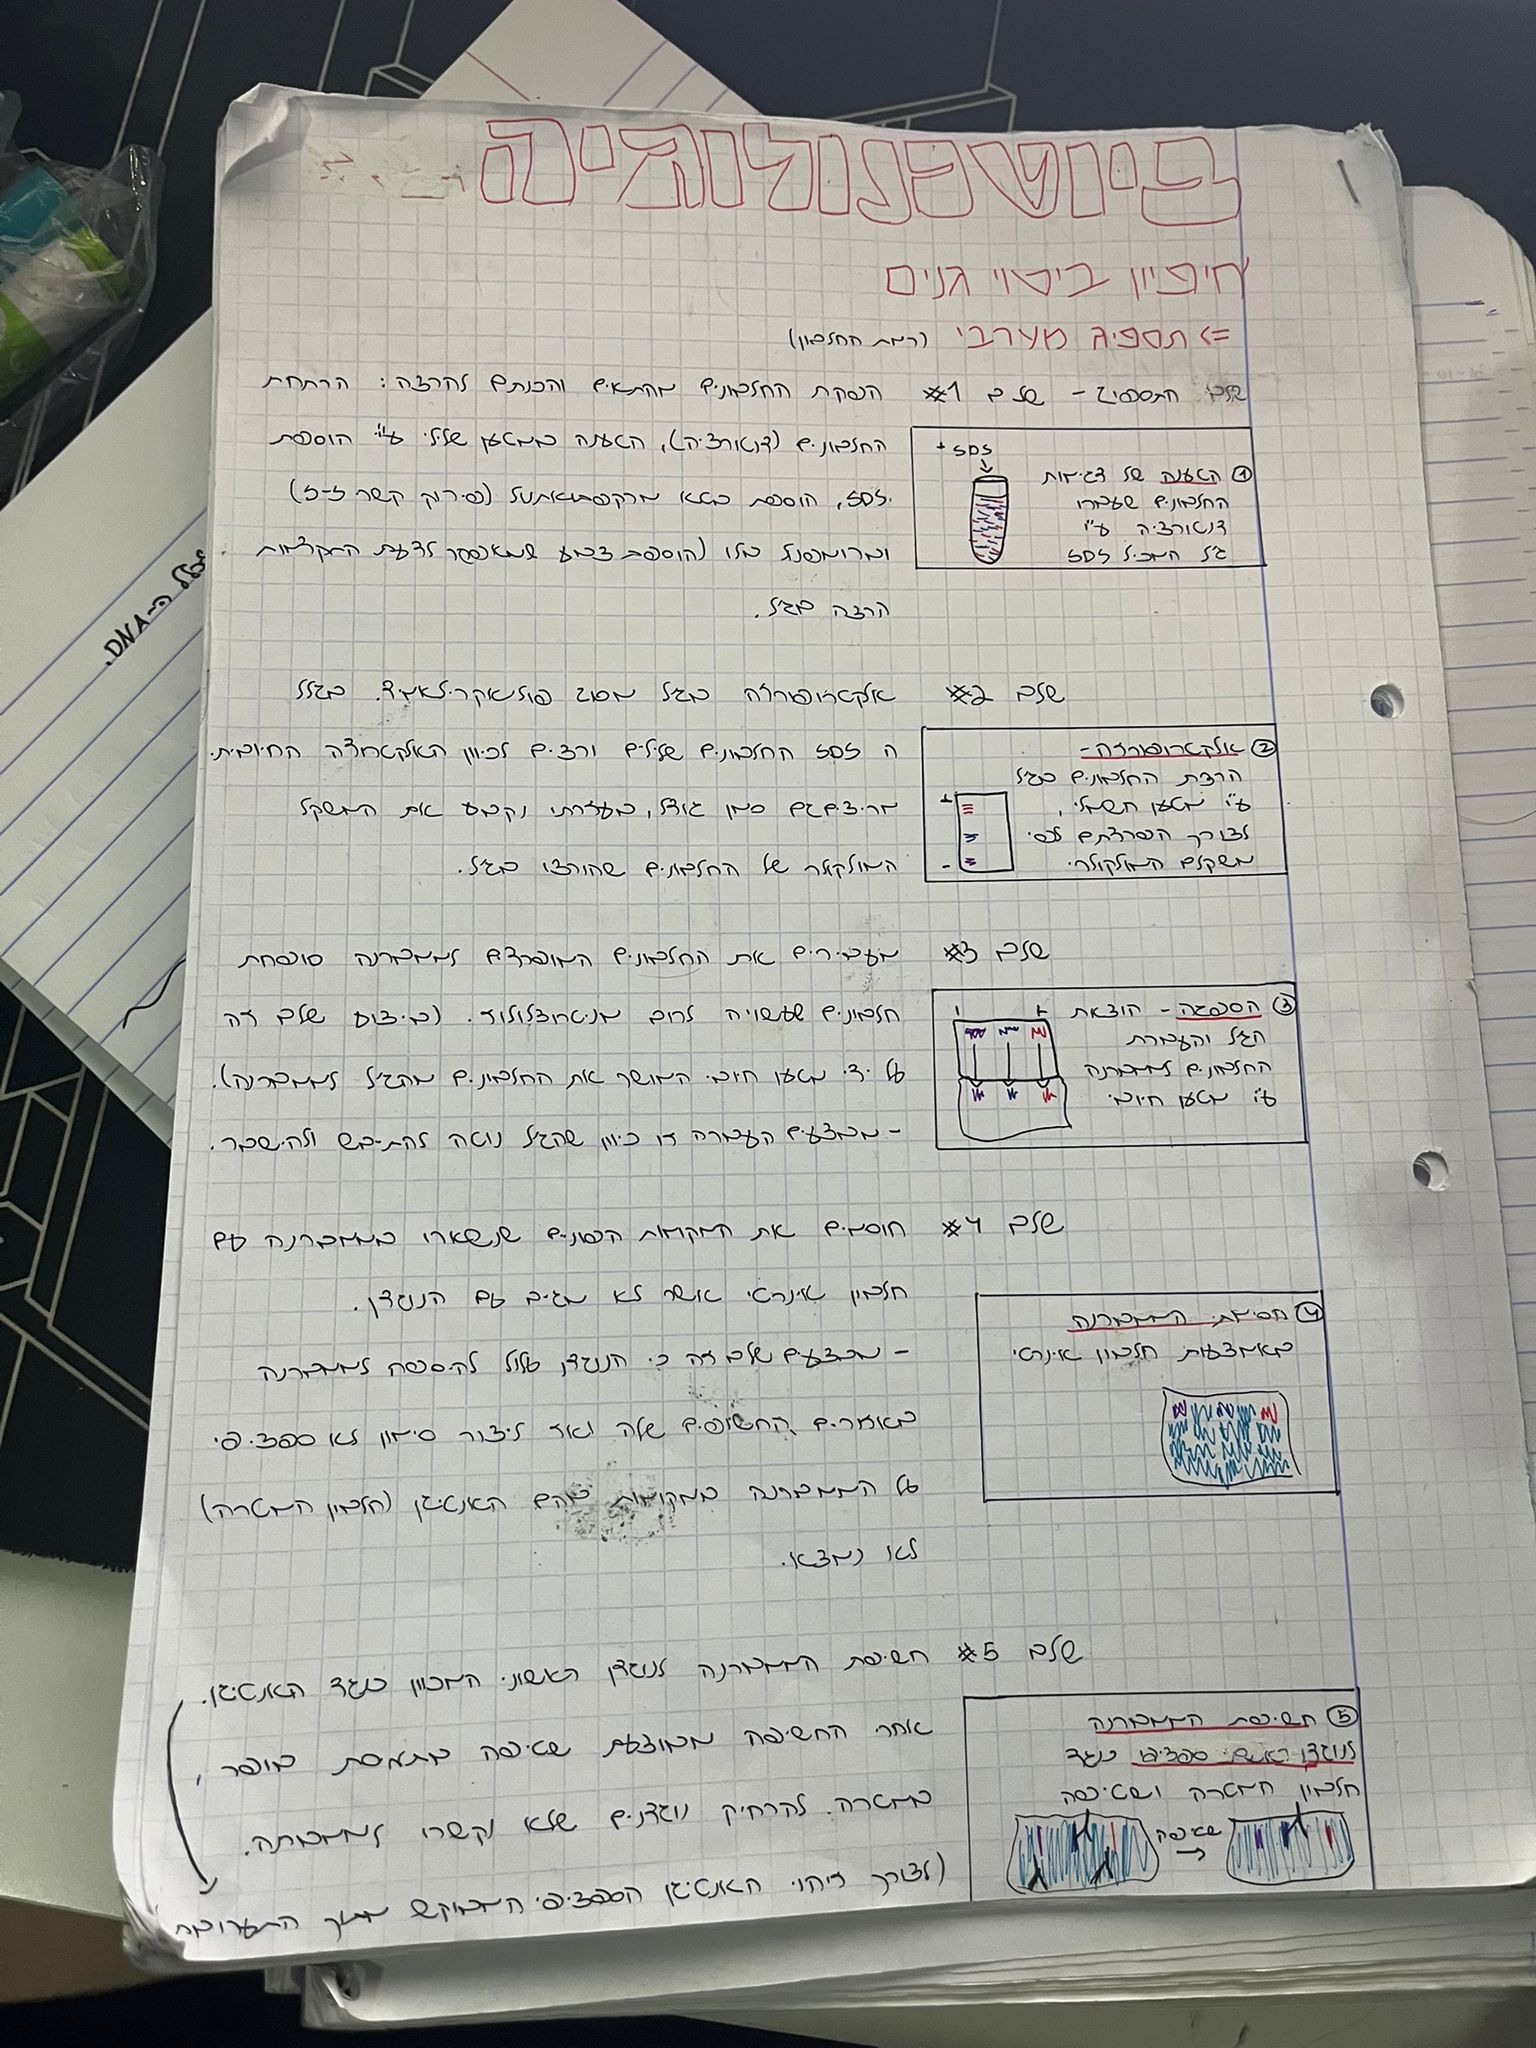 ביוטכנולוגיה
חיפיון ביטוי גנים
<= תספיג מערבי (רמת החלבון)
שלבי התספיג - שלב #1 הפקת החלבונים מהתאים והכנתם להרצה: הרתחת
החלבונים (דנטורציה), הטענה במטען שלילי ע"י הוספת
SDS, הוספת בטא מרקפטואתנול (פירוק קשר S-S)
וברומופנול בלו (הוספת צבע שמאפשר לדעת התקדמות
הרצה בג'ל.
+ SDS
① הטענה של דגימות
החלבונים שעברו
דנטורציה ע"י
ג'ל המכיל SDS
שלב #2 אלקטרופורזה בג'ל מסוג פוליאקרילאמיד. בגלל
ה SDS החלבונים שליליים ורצים לכיוון האלקטרודה החיובית.
מריצים גם סמן גודל, בעזרתו נקבע את המשקל
המולקולרי של החלבונים שהורצו בג'ל.
② אלקטרופורזה -
הרצת החלבונים בג'ל
ע"י מטען חשמלי,
לצורך הפרדתם לפי
משקלם המולקולרי
+
-
שלב #3 מעבירים את החלבונים המופרדים לממברנה סופחת
חלבונים שעשויה לרוב מניטרוצלולוז. (ביצוע שלב זה
על ידי מטען חיובי המושך את החלבונים מהג'ל לממברנה).
- מבצעים העברה זו כיוון שהג'ל נוטה להתייבש ולהישבר.
③ הספגה - הוצאת
הג'ל והעברת
החלבונים לממברנה
ע"י מטען חיובי
שלב #4 חוסמים את המקומות הפנויים שנשארו בממברנה עם
חלבון אינרטי אשר לא מגיב עם הנוגדן.
- מבצעים שלב זה כי הנוגדן עלול להיספח לממברנה
באזורים החשופים שלה ואז ליצור סימון לא ספציפי
על הממברנה במקומות בהם האנטיגן (חלבון המטרה)
לא נמצא.
④ חסימת הממברנה
באמצעות חלבון אינרטי
שלב #5 חשיפת הממברנה לנוגדן הראשוני המכוון כנגד האנטיגן.
אחרי החשיפה מבוצעת שטיפה בתמיסת בופר,
במטרה להרחיק נוגדנים שלא נקשרו לממברנה.
(לצורך זיהוי האנטיגן הספציפי המבוקש מתוך התערובת
⑤ חשיפת הממברנה
לנוגדן ראשוני ספציפי כנגד
חלבון המטרה ושטיפה
שטיפה
→
ה-DNA.